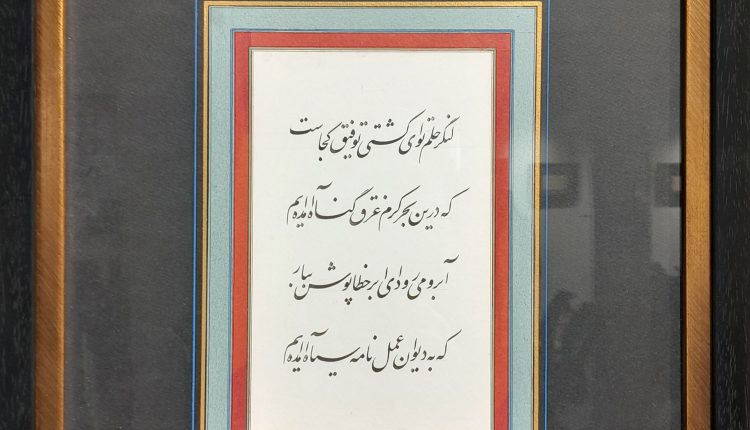 لنگر حلم تو ای کشتی توفیق کجاست
که درین بحر کرم غرق گناه آمده‌ایم
آبرو می‌رود ای ابر خطاپوش ببار
که به دیوان عمل نامه سیاه آمده‌ایم